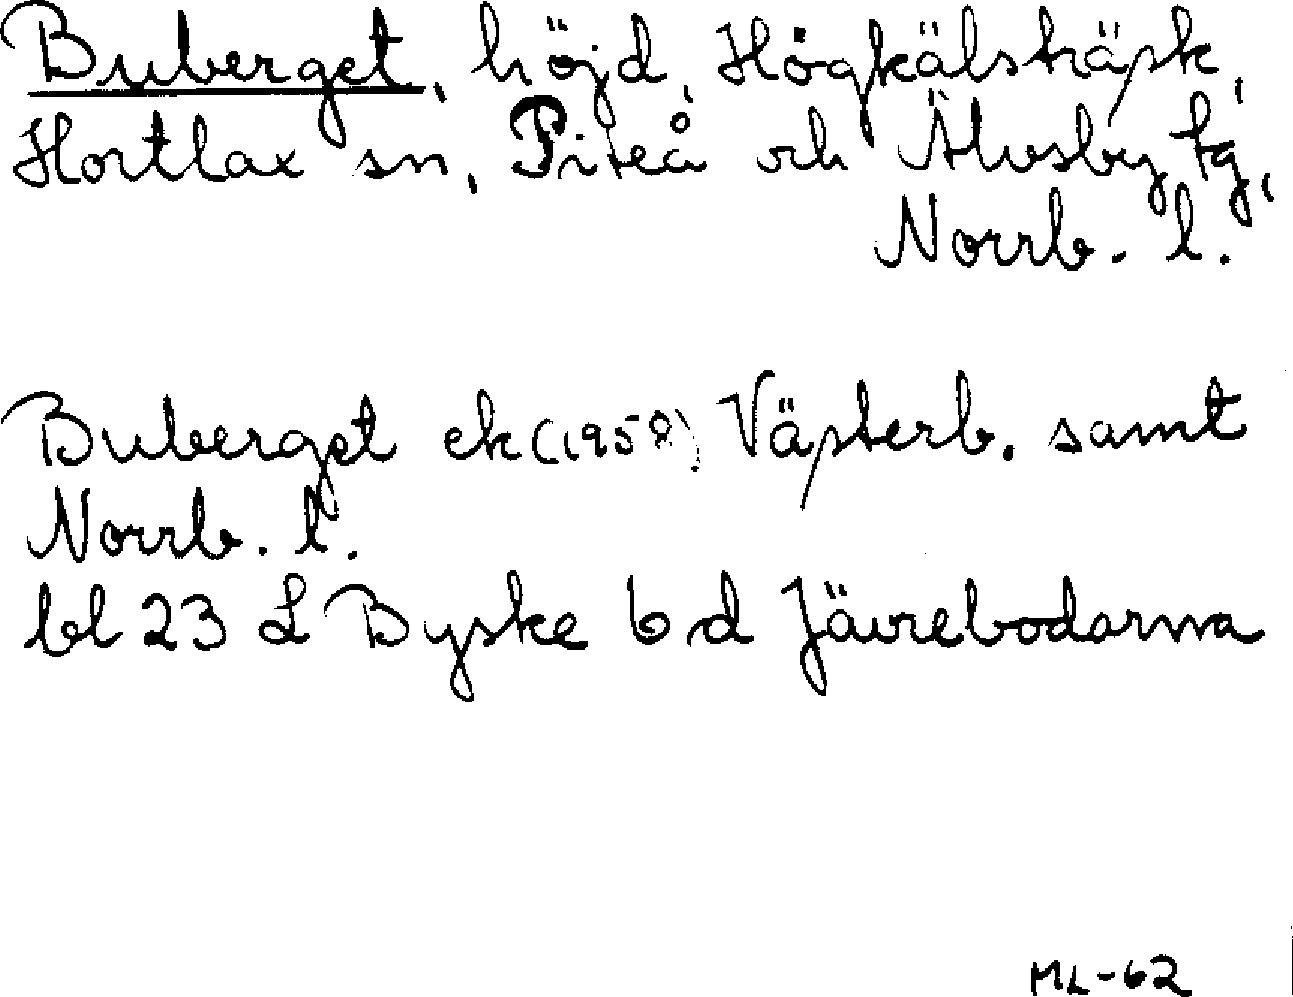 Buberget, höjd, Högkälsträsk,
Hortlax sn, Piteå och Älvsby tg,
Norrb. l.
Buberget ek (1958) Västerb. samt
Norrb. l.
bl 23 L Byske 6 d Jävrebodarna
ML-62